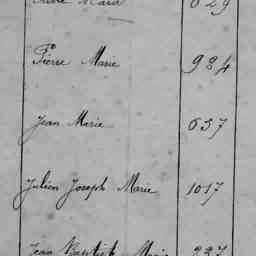 Marie 629
Pierre Marie 984
Jean Marie 637
Julien Joseph Marie 1017
Jean Baptiste Marie 227